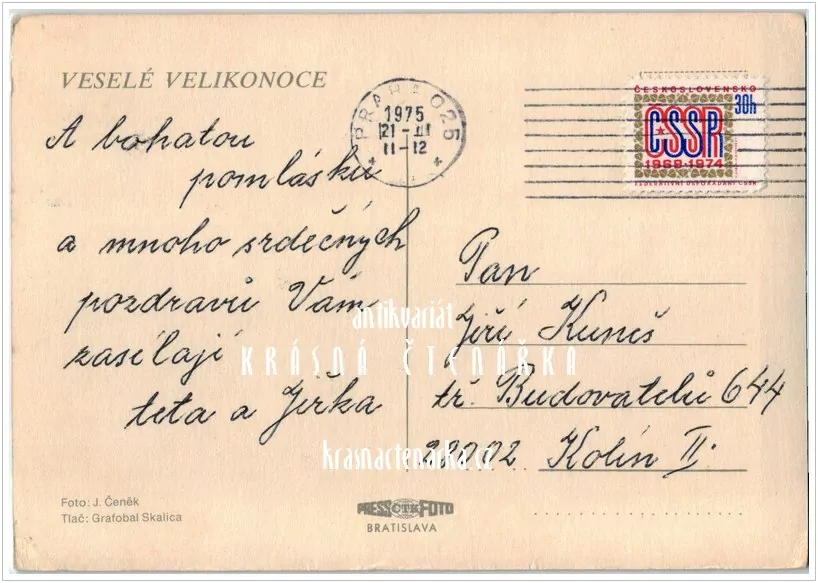 VESELÉ VELIKONOCE
A bohatou
pomlásku
a mnoho srdečných
pozdravů Vám
zasílají
teta a Jiřka
PRAHA 025
1975
21-III
11-12
ČESKOSLOVENSKO
30h
ČSSR
1969-1974
FEDERATIVNÍ USPOŘÁDÁNÍ ČSSR
Pan
Jiří Kuneš
tř. Budovatelů 644
28002 Kolín II.
antikvariát
KRÁSNÁ ČTENÁŘKA
krasnactenarka.cz
Foto: J. Čeněk
Tlač: Grafobal Skalica
PRESSČTKFOTO
BRATISLAVA